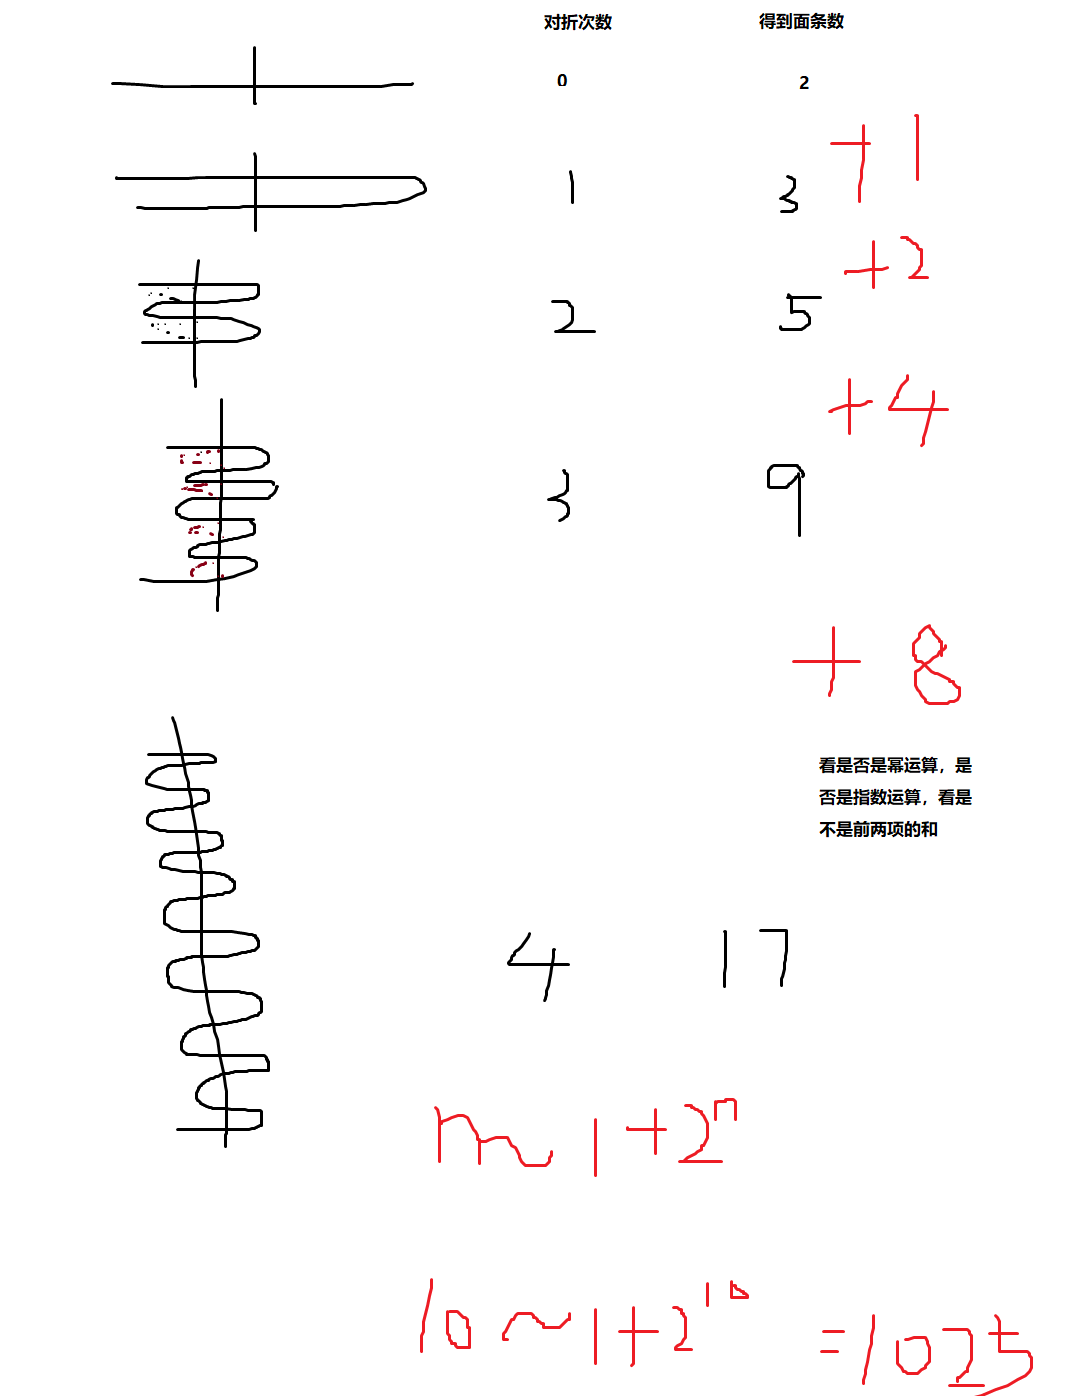 对折次数 得到面条数
0 2
+1
1 3
+2
2 5
+4
3 9
+8
看是否是幂运算，是
否是指数运算，看是
不是前两项的和
4 17
n~1+2ⁿ
10~1+2¹⁰ =1025